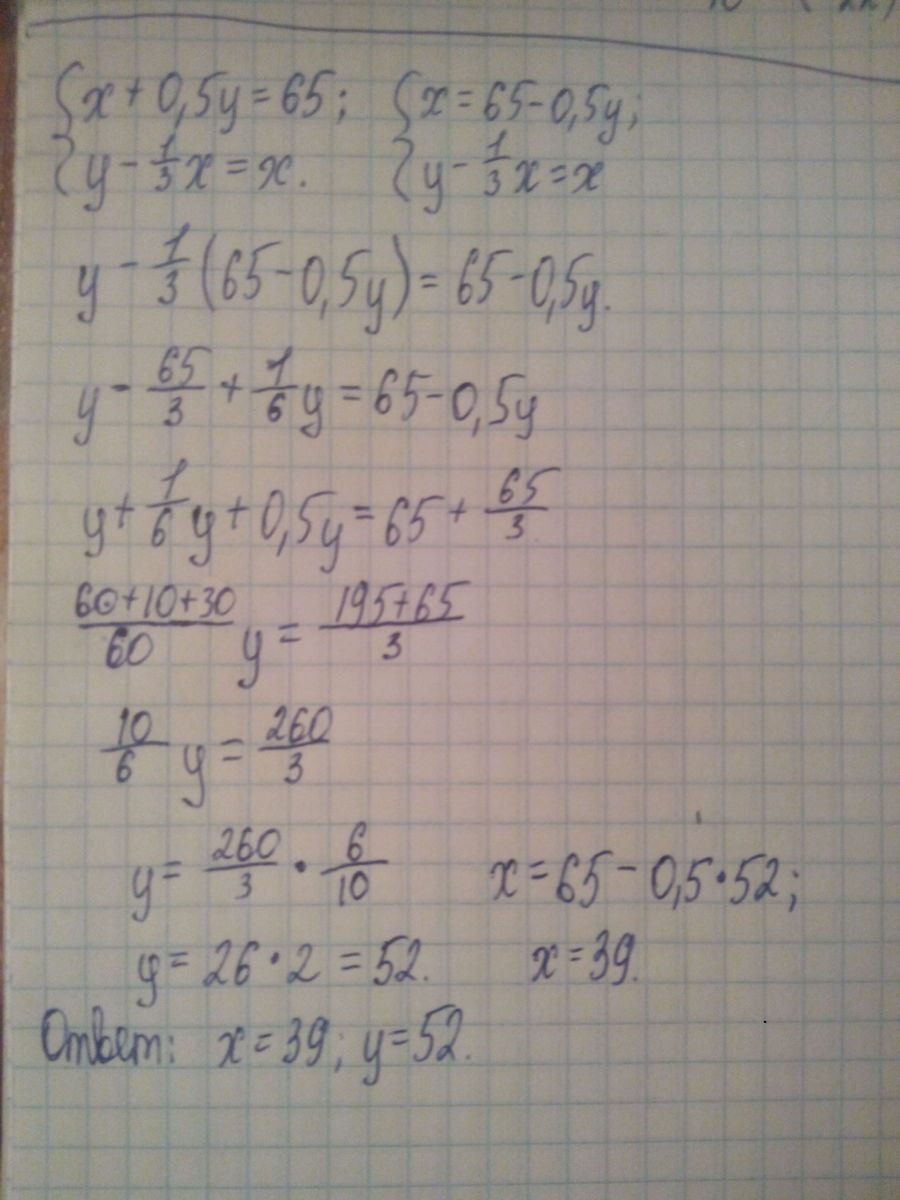 {x + 0,5y = 65; {x = 65 - 0,5y;
{y - 1/3 x = x. {y - 1/3 x = x
y - 1/3 (65 - 0,5y) = 65 - 0,5y.
y - 65/3 + 1/6 y = 65 - 0,5y
y + 1/6 y + 0,5y = 65 + 65/3
(60+10+30)/60 y = (195+65)/3
10/6 y = 260/3
y = 260/3 · 6/10 x = 65 - 0,5 · 52;
y = 26 · 2 = 52. x = 39.
Ответ: x = 39; y = 52.